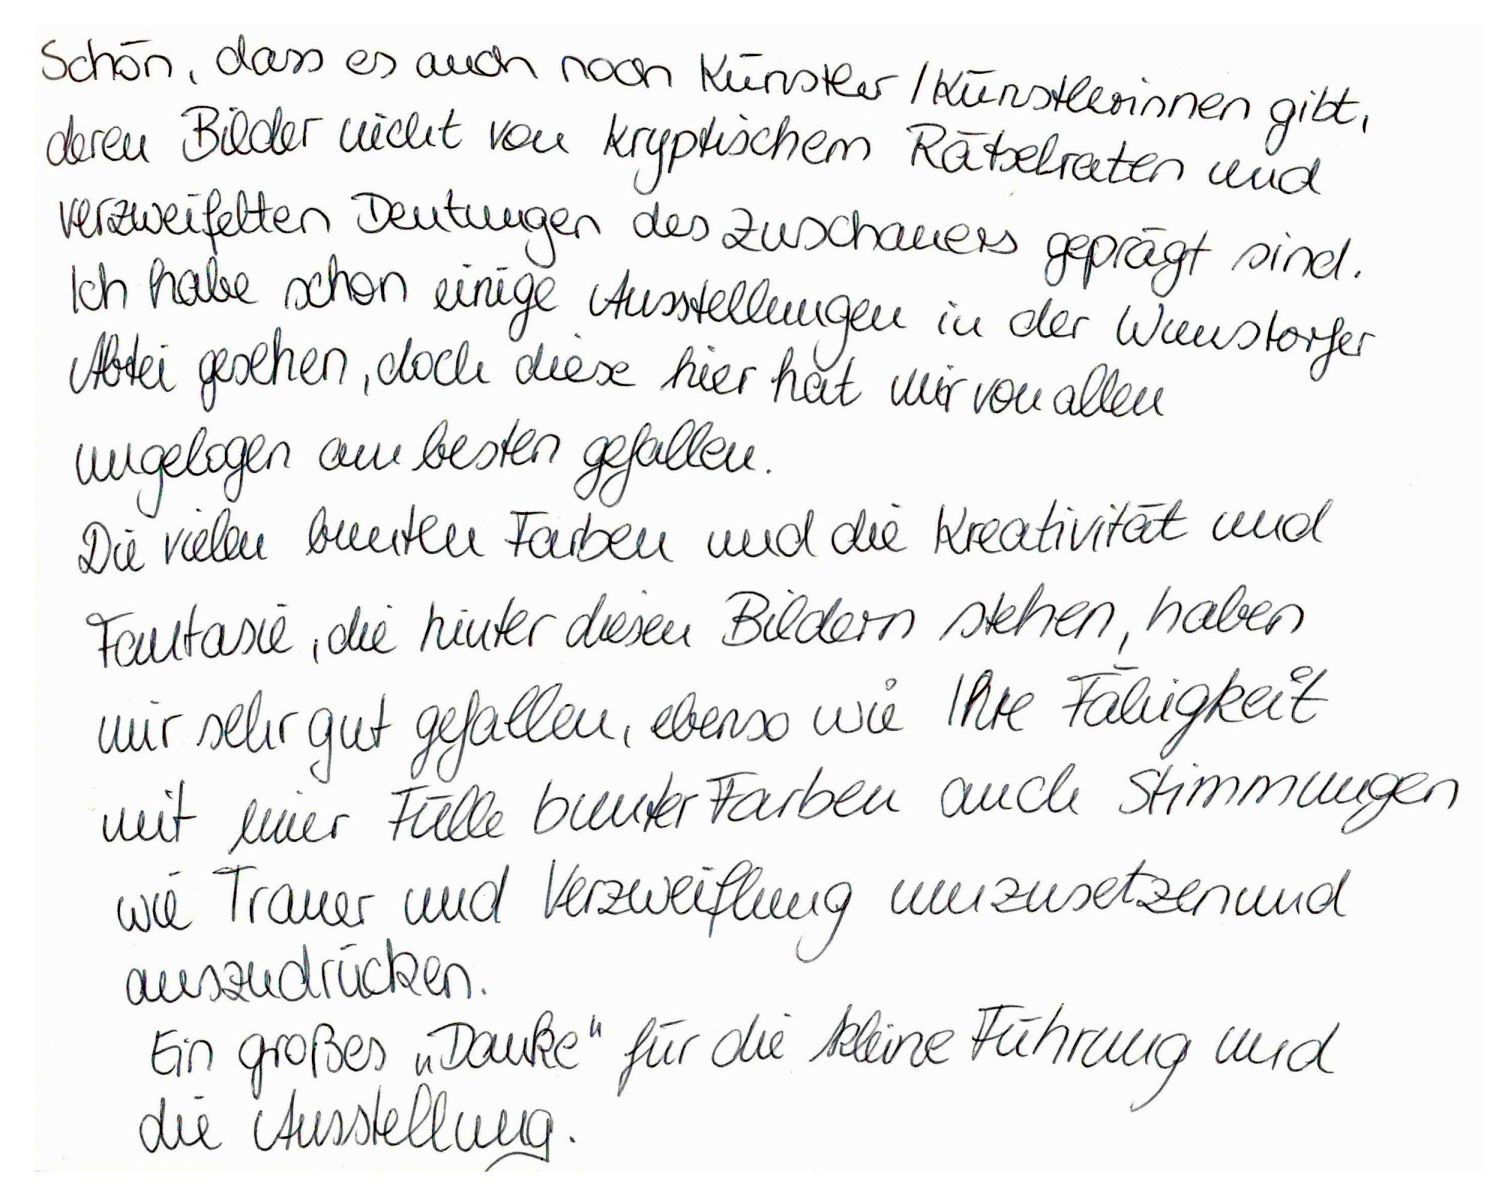 Schön, dass es auch noch Künstler / Künstlerinnen gibt,
deren Bilder nicht von kryptischem Rätselraten und
verzweifelten Deutungen des Zuschauers geprägt sind.
Ich habe schon einige Ausstellungen in der Wunstorfer
Abtei gesehen, doch diese hier hat mir von allen
ungelogen am besten gefallen.
Die vielen bunten Farben und die Kreativität und
Fantasie, die hinter diesen Bildern stehen, haben
mir sehr gut gefallen, ebenso wie Ihre Fähigkeit
mit einer Fülle bunter Farben auch Stimmungen
wie Trauer und Verzweiflung umzusetzen und
auszudrücken.
Ein großes „Danke“ für die kleine Führung und
die Ausstellung.